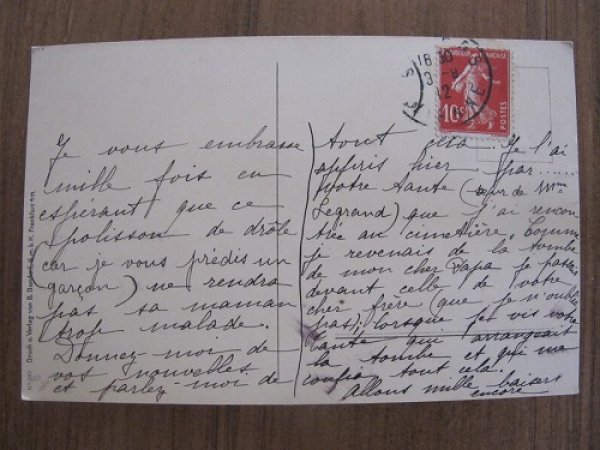 Je vous embrasse
mille fois en
espérant que ce
polisson de drôle
(car je vous prédis un
garçon) ne rendra
pas sa maman
trop malade.
Donnez-moi de
vos nouvelles
et parlez-moi de
tout cela. Je l'ai
appris hier par......
votre tante (sœur de Mme
Legrand) que j'ai rencon
trée au cimetière. Comme
je revenais de la tombe
de mon cher Papa je passai
devant celle de votre
cher frère (que je n'oublie
pas); lorsque je vis votre
tante que arrangeait
la tombe et qui me
confia tout cela.
Allons mille baisers
encore
Druck u. Verlag von B. Dondorf, G. m. b. H. Frankfurt a/M.
10c
POSTES